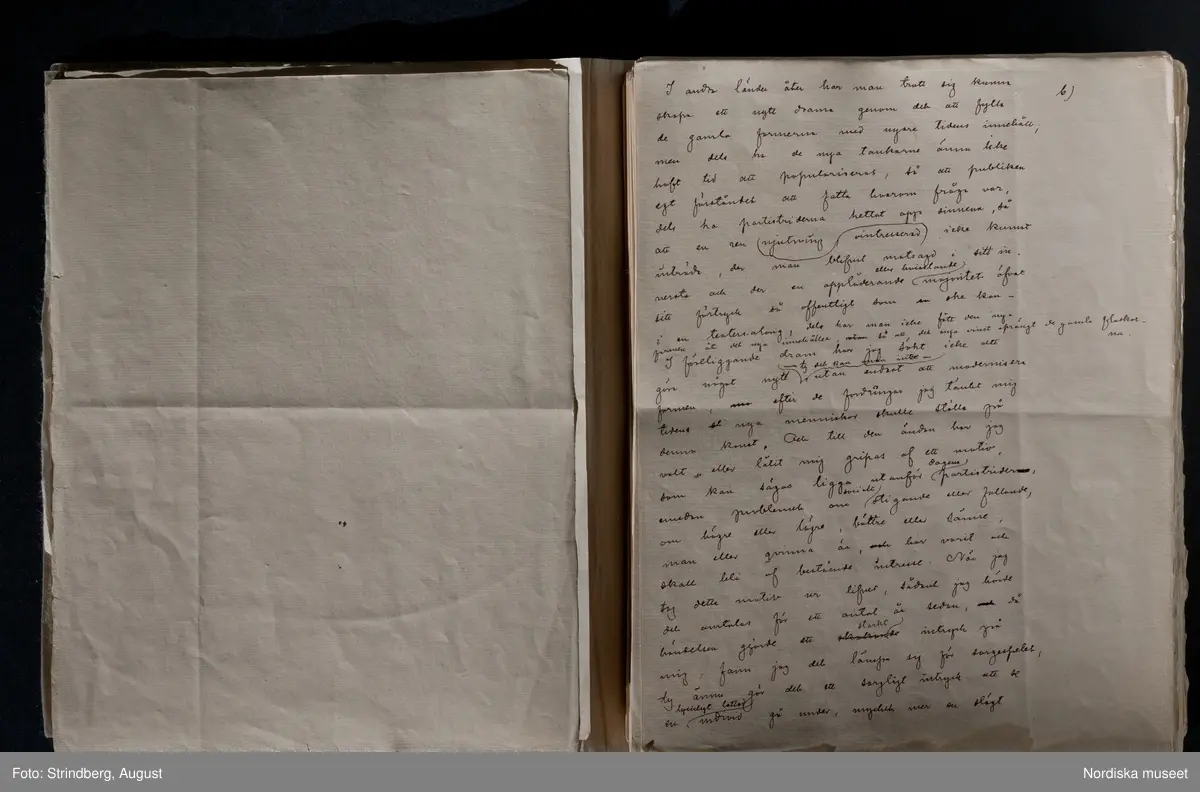 b)
I andra länder åter har man trott sig kunna
skapa ett nytt drama genom det att fylla
de gamla formerna med nyare tidens innehåll;
men dels ha de nya tankarne ännu icke
haft tid att populariseras, så att publiken
egt förståndet att fatta hvarom fråga var,
dels ha partistriderna hettat opp sinnena, så
att en ren njutning ointresserad icke kunnat
inträda, der man blifvit motsagd i sitt in-
eller hvisslande
nersta och der en applåderande majoritet öfvat
sitt förtryck så offentligt som en ske kan
i en teatersalong, dels har man icke fått den nya
formen åt det nya innehållet, så att det nya vinet sprängt de gamla flaskor-
na.
I föreliggande dram har jag sökt icke att
ty det kan man inte
göra något nytt utan endast att modernisera
formen, efter de fordringar jag tänkt mig
tidens nya menniskor skulle ställa på
denna konst. Och till den ändan har jag
valt eller låtit mig gripas af ett motiv,
dagens
som kan sägas ligga utanför partistrider,
socialt
emedan problemet om stigande eller fallande,
om högre eller lägre, bättre eller sämre,
man eller qvinna är, har varit och
skall bli af bestående intresse. När jag
tog detta motiv ur lifvet, sådant jag hörde
det omtalas för ett antal år sedan, då
starkt
händelsen gjorde ett intryck på
mig, fann jag det lämpa sig för sorgespelet,
ty ännu gör det ett sorgligt intryck att se
lyckligt lottad
en individ gå under, mycket mer en slägt
Foto: Strindberg, August
Nordiska museet